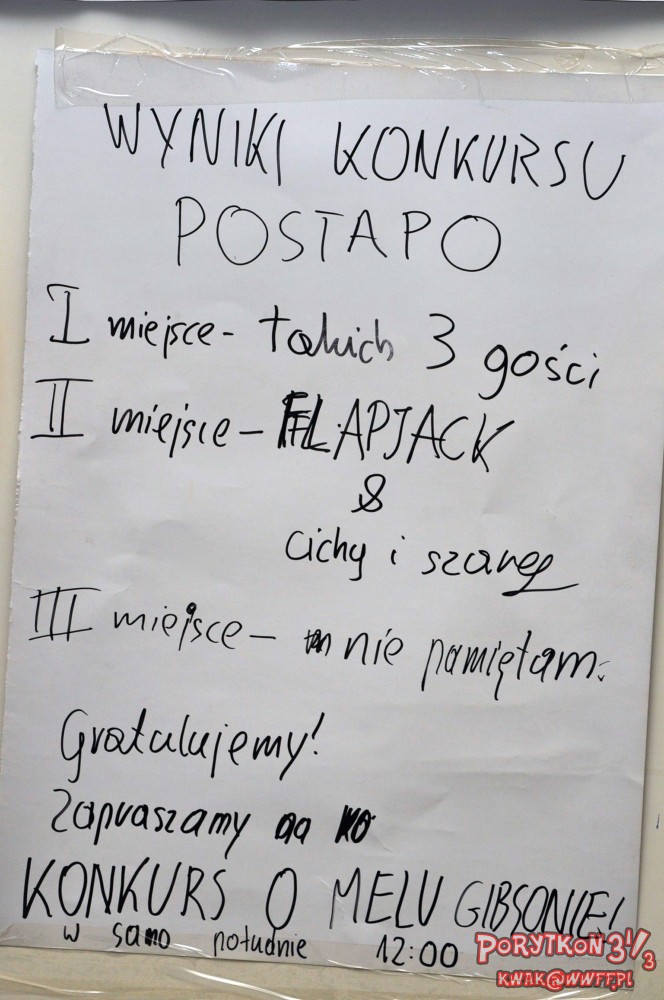 WYNIKI KONKURSU
POSTAPO
I miejsce - takich 3 gości
II miejsce - FLAPJACK
&
cichy i szary
III miejsce - nie pamiętam.
Gratulujemy!
Zapraszamy na
KONKURS O MELU GIBSONIE!
w samo południe 12:00
PORYTKON 3 1/3
KWAK@WWFF.PL